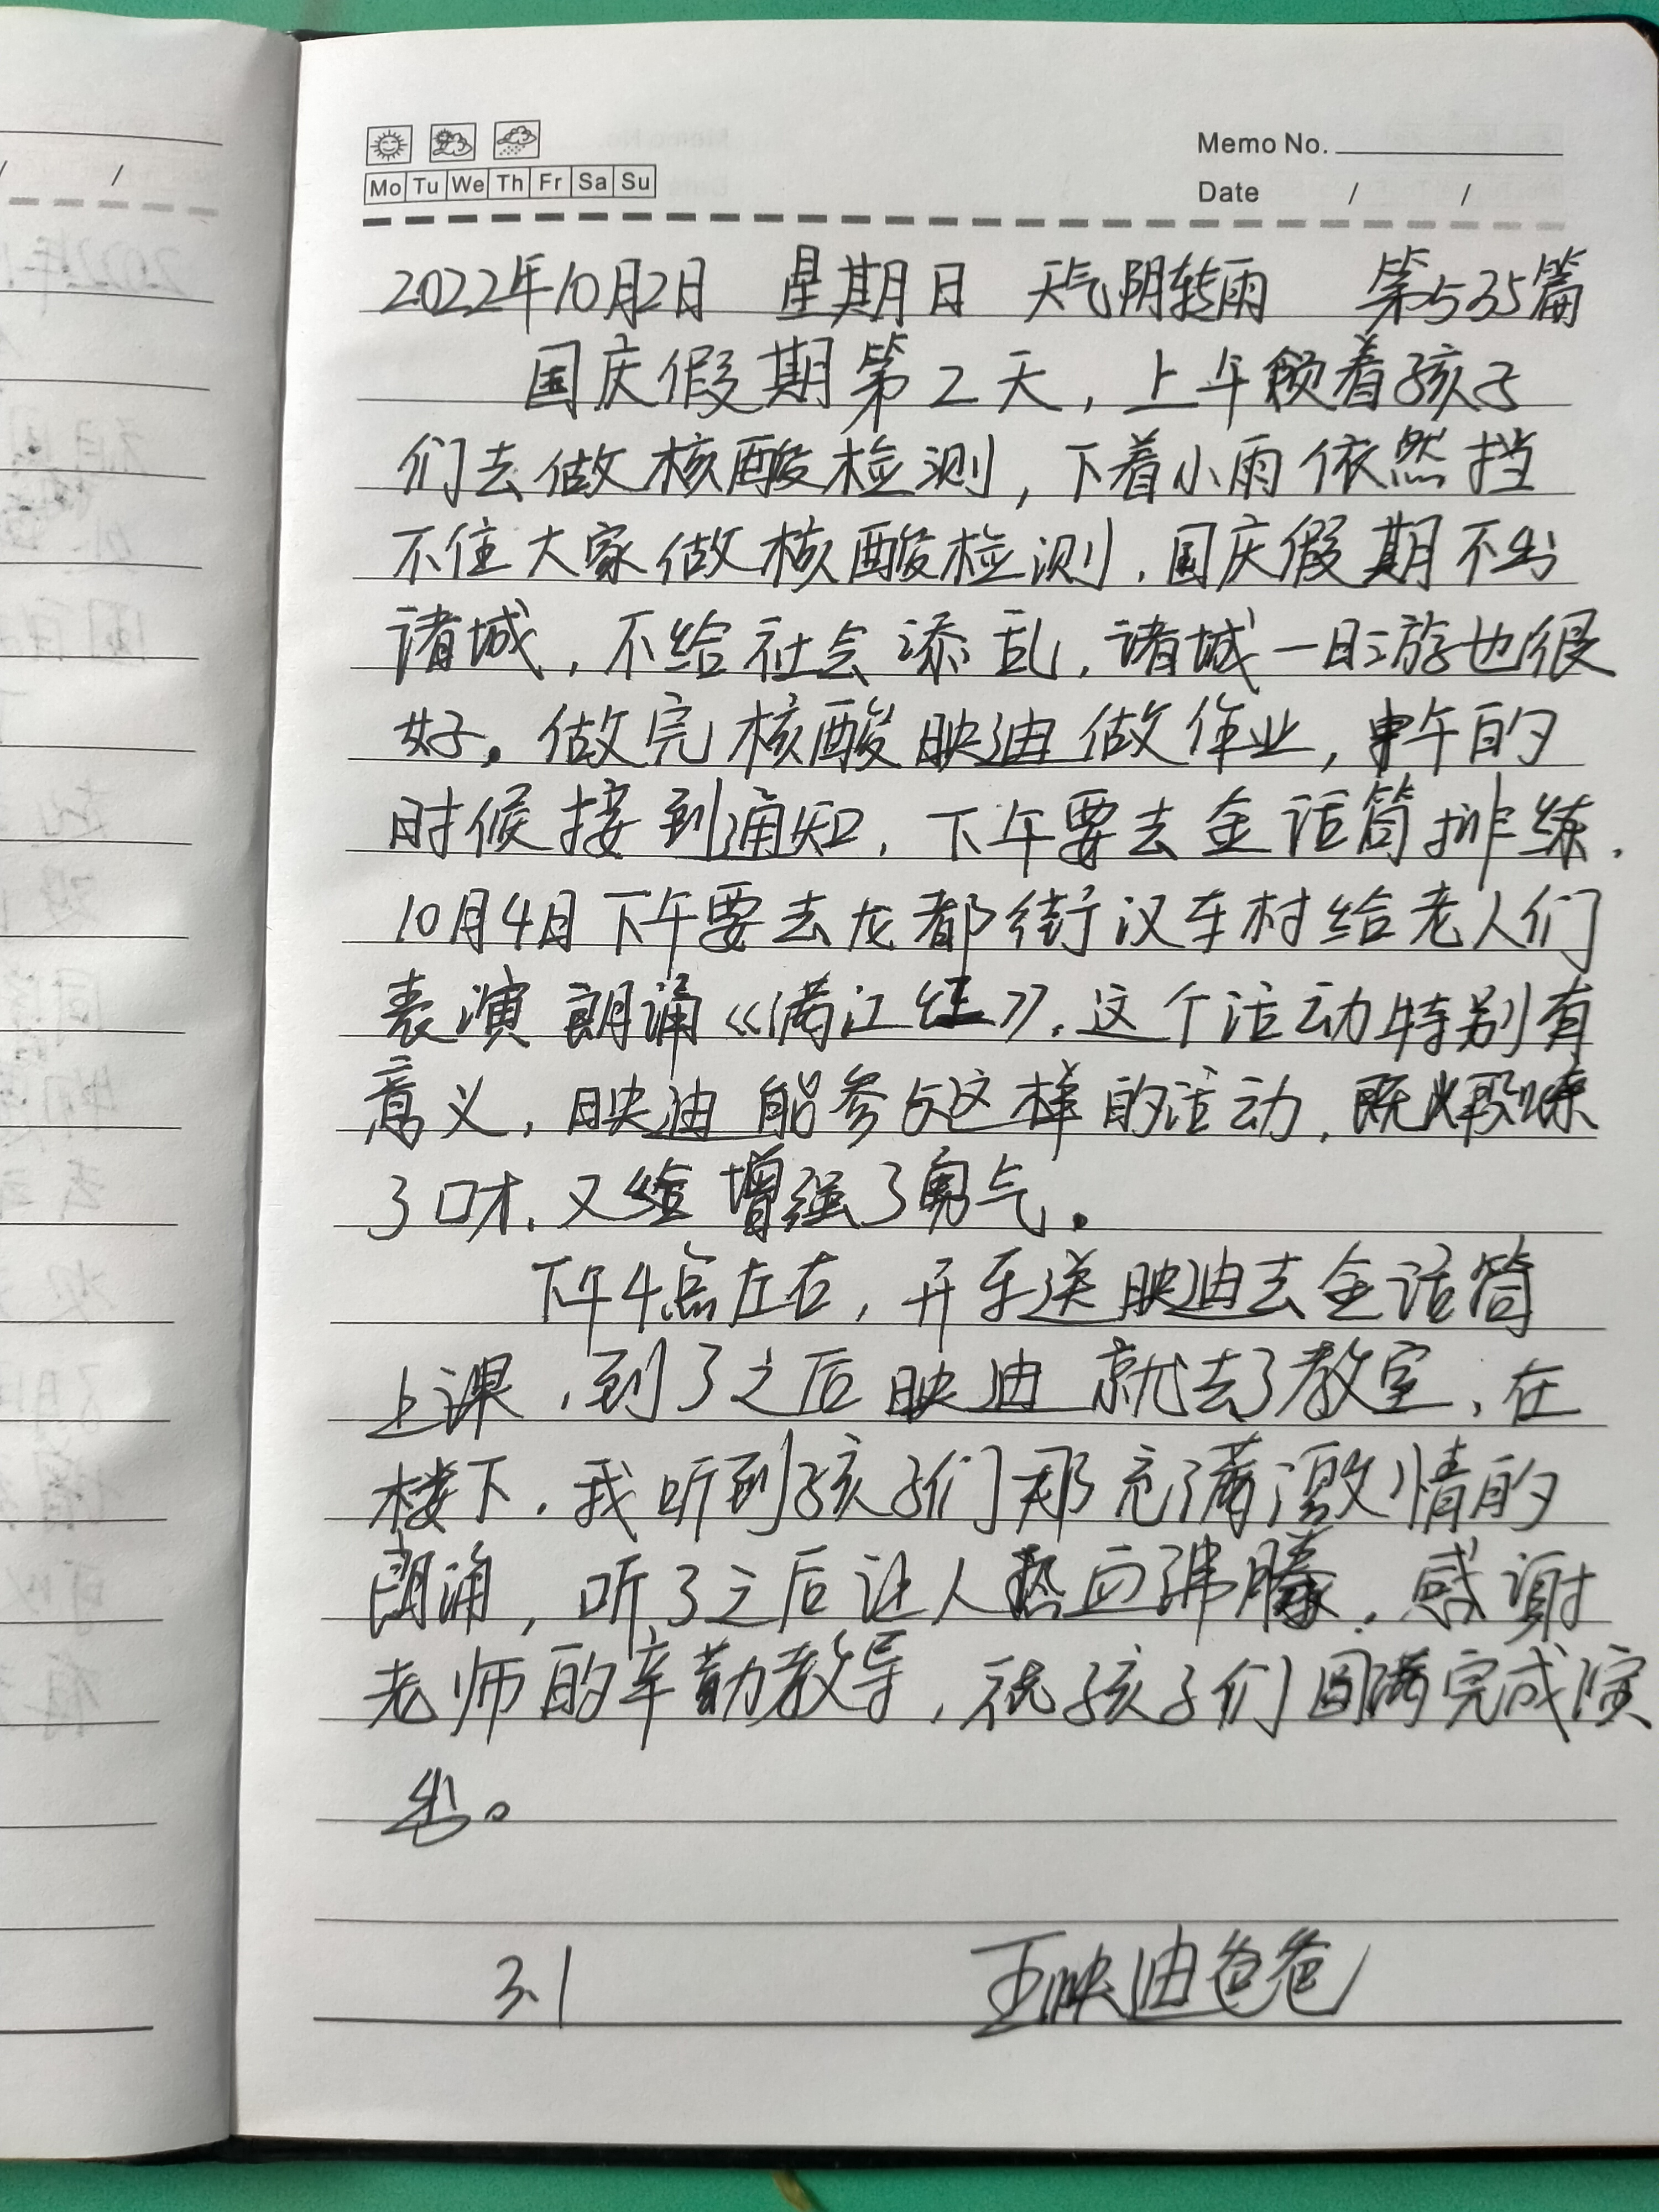 Memo No.
Mo Tu We Th Fr Sa Su
Date / /
2022年10月2日 星期日 天气阴转雨 第535篇
国庆假期第2天，上午领着孩子
们去做核酸检测，下着小雨依然挡
不住大家做核酸检测，国庆假期不出
诸城，不给社会添乱，诸城一日游也很
好。做完核酸映迪做作业，中午的
时候接到通知，下午要去金话筒排练，
10月4日下午要去龙都街汉车村给老人们
表演朗诵《满江红》，这个活动特别有
意义，映迪能参与这样的活动，既锻炼
了口才，又增强了勇气。
下午4点左右，开车送映迪去金话筒
上课，到了之后映迪就去了教室，在
楼下，我听到孩子们那充满激情的
朗诵，听了之后让人热血沸腾，感谢
老师的辛勤教导，祝孩子们圆满完成演
出。
31 王映迪爸爸